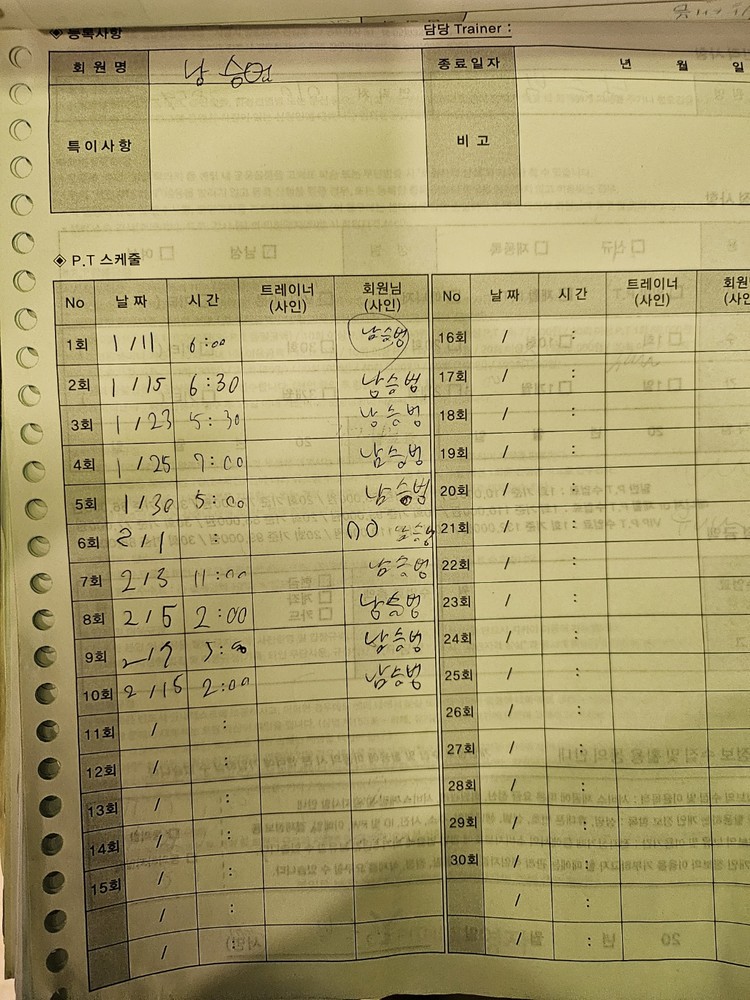 ◈ 등록사항 담당 Trainer :
회 원 명 남승범 종료일자 년 월 일
특이사항 비 고
◈ P.T 스케줄
No 날 짜 시 간 트레이너 (사인) 회원님 (사인) No 날 짜 시 간 트레이너 (사인)
1회 1/11 6:00 남승범 16회 / :
2회 1/15 6:30 남승범 17회 / :
3회 1/23 5:30 남승범 18회 / :
4회 1/25 7:00 남승범 19회 / :
5회 1/30 5:00 남승범 20회 / :
6회 2/1 : 남승범 21회 / :
7회 2/3 11:00 남승범 22회 / :
8회 2/5 2:00 남승범 23회 / :
9회 남승범 24회 / :
10회 2:00 남승범 25회 / :
11회 / : 26회 / :
12회 / : 27회 / :
13회 / : 28회 / :
14회 / : 29회 / :
15회 / : 30회 / :
/ : / :
/ : / :